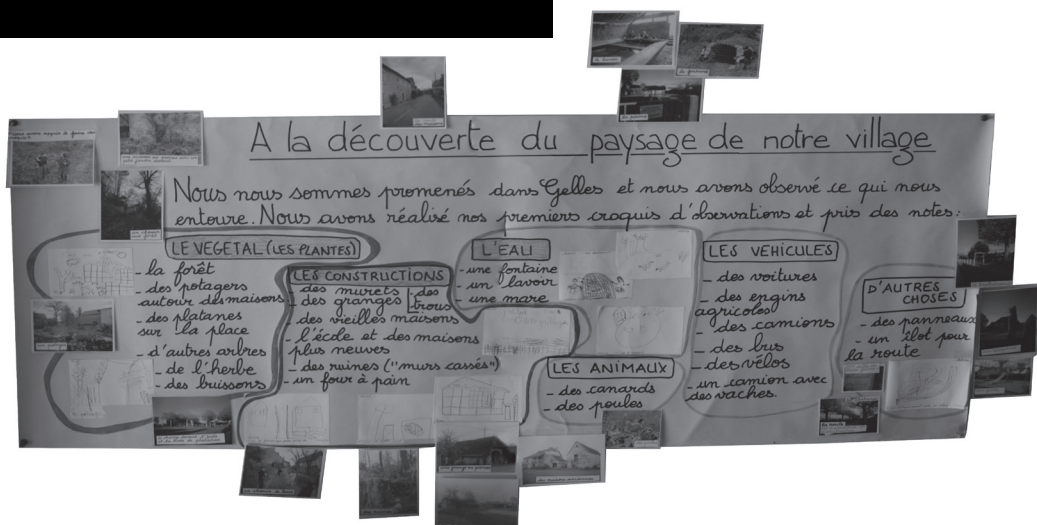 A la découverte du paysage de notre village
Nous nous sommes promenés dans Gelles et nous avons observé ce qui nous
entoure. Nous avons réalisé nos premiers croquis d'observations et pris des notes:
LE VEGETAL (LES PLANTES)
- la forêt
- des potagers
autour des maisons
- des platanes
sur la place
- d'autres arbres
- de l'herbe
- des buissons
LES CONSTRUCTIONS
- des murets
- des granges
des
trous
- des vieilles maisons
- l'école et des maisons
plus neuves
- des ruines ("murs cassés")
- un four à pain
L'EAU
- une fontaine
- un lavoir
- une mare
LES ANIMAUX
- des canards
- des poules
LES VEHICULES
- des voitures
- des engins
agricoles
- des camions
- des bus
- des vélos
- un camion avec
des vaches.
D'AUTRES
CHOSES
- des panneaux
- un îlot pour
la route